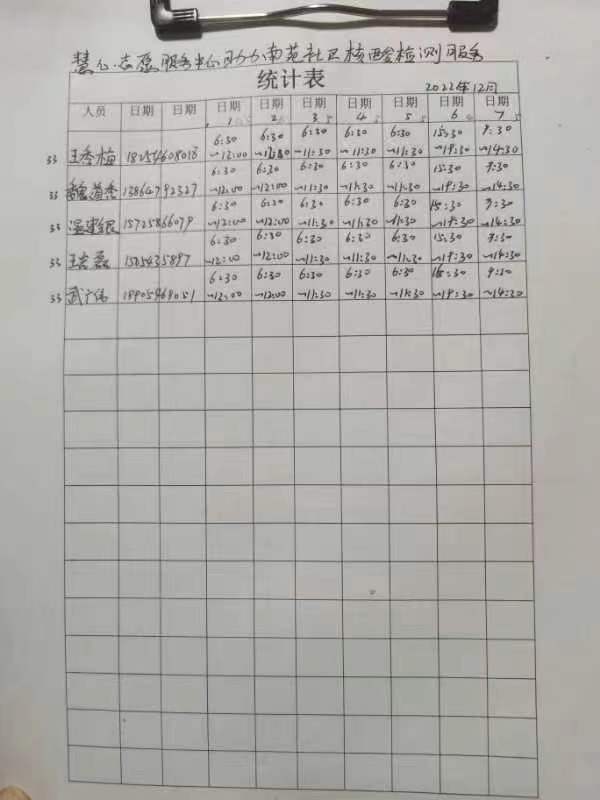 慧心志愿服务中心助力南苑社区核酸检测服务
统计表
2022年12月
人员 日期 日期 日期 日期 日期 日期 日期 日期 日期
1 2 3 4 5 6 7
6:30 6:30 6:30 6:30 6:30 15:30 9:30
33 王秀梅 18254608018 ~12:00 ~12:30 ~11:30 ~11:30 ~11:30 ~19:30 ~14:30
6:30 6:30 6:30 6:30 6:30 15:30 9:30
13864792327 ~12:00 ~12:00 ~11:30 ~11:30 ~11:30 ~19:30 ~14:30
6:30 6:20 6:30 6:30 6:30 15:30 9:30
33 温建银 15725866079 ~12:00 ~12:00 ~11:30 ~11:30 ~11:30 ~19:30 ~14:30
6:30 6:30 6:30 6:30 6:30 15:30 9:30
33 1505435897 ~12:00 ~12:00 ~11:30 ~11:30 ~11:30 ~19:30 ~14:30
6:30 6:30 6:30 6:30 6:30 15:30 9:30
33 武广伟 18905469051 ~12:00 ~12:00 ~11:30 ~11:30 ~11:30 ~19:30 ~14:30